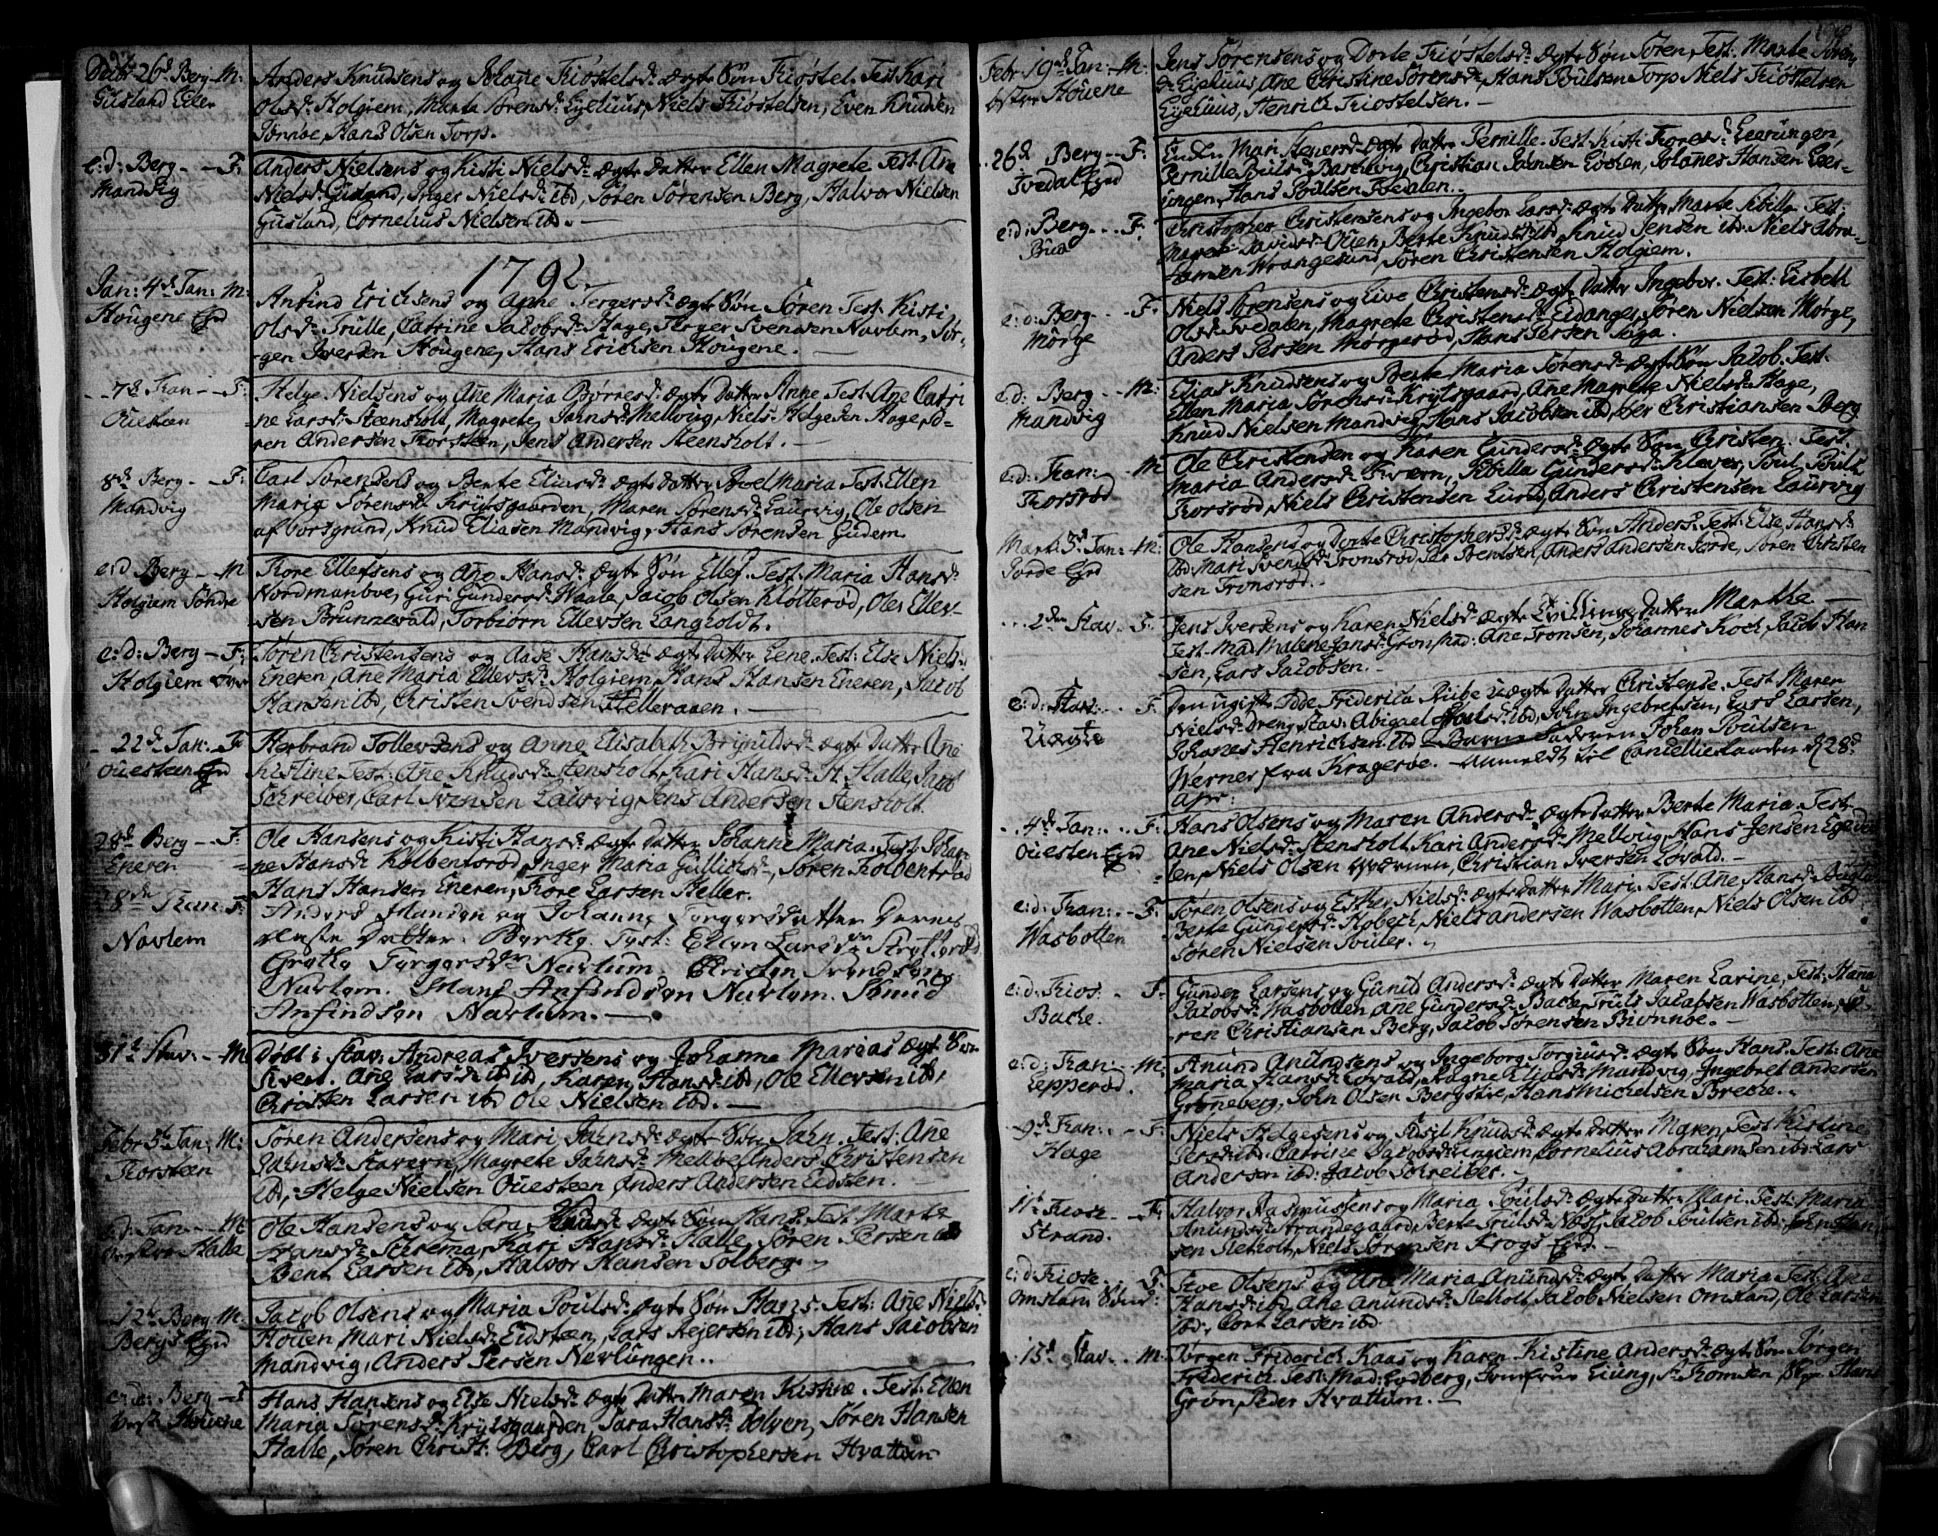 Decbr 26d Berg. M.
Gusland
Anders Knudsens og Johane Triøstelsd: ægte Søn Triøstel. Test: Kari
Olsd: Holgiem, Marte Sørensd: Eyeluus, Niels Triøstelsen, Even Knudsen
Hans Olsen Torp.
e:d: Berg - - F.
Mandvig
Anders Nielsens og Kisti Nielsd: ægte Datter Ellen Magrete. Test: Ane
Nielsd: Inger Nielsd: ibd, Sören Sörensen Berg, Halvor Nielsen
Gusland, Cornelius Nielsen ibd. -
1792
Jan: 4d Tan: M:
Hougene Eyd
Anfind Erichsens og Anne Tergersd: ægte Søn Søren. Test: Kisti
Olsd: Trulle, Catrine Jacobsd: Hage, Terger Svensen Navlem, Jør-
gen Iversen Hougene, Hans Erichsen Hougene. -
7d Tan - - F.
Ouesteen
Helge Nielsens og Ane Maria Børresd: ægte Datter Anne. Test: Ane Catri
ne Larsd: Steensholt, Magrete Jahnsd: Mellvug, Niels Helgesen Hage, Sø-
ren Andersen Torsteen, Jens Andersen Steensholt. -
8d Berg - - F:
Mandvig
Carl Sørensens og Berte Eliasd: ægte Datter Boel Maria. Test: Ellen
Maria Sørensd: Krystsgaarden, Maren Sørensd: Laurvig, Ole Olsen
af Porsgrund, Knud Eliasen Mandvig, Hans Sørensen Gudem.
e:d Berg - M
Holgiem Söndre
Tore Ellefsens og Ane Hansd: ægte Søn Ellef. Test: Maria Hansd:
Nordmanboe, Guri Gundersd: Waale, Jacob Olsen Klotterød, Ole Ellev-
sen Brunnevald, Torbiørn Ellevsen Langholdt.
e:d: Berg - F:
Holgiem
Sören Christensens og Aase Hansd: ægte Datter Lene. Test: Else Niels:
Eneren, Ane Maria Ellevsd: Holgiem, Hans Hansen Eneren, Jacob
Hansen ibd, Christen Svendsen Helleraaen. -
22d Tan: F
Ouesteen Eyd
Herbrand Tollevsens og Anne Elisabeth Brynildsd: ægte Datter Ane
Kistine. Test: Ane Knudsd: Stensholt, Kari Hansd: St. Halle, Jacob
Schreiber, Carl Svensen Laurvig, Jens Andersen Stensholt.
28d Berg - - F.
Eneren
Ole Hansens og Kisti Hansd: ægte Datter Johanne Maria. Test: Johan-
ne Hansd: Kolbentsrød, Inger Maria Gullichsd:, Søren Kolbentsrød
Hans Hansen Eneren, Tore Larsen Heller.
28de Tan: F:
Navlem
Anders Hansen og Johanne Torgersdatter Derres
ægte Datter. Byrthe. Test: Ellen Larsd:
Grethe Torgersdr Navlum. Christen Svendsen
Navlem. Hans Anfindsøn Navlum. Knud
Anfindsøn Navlum. -
31d Stav. - M
Døbt i Stav: Andreas Iversens og Johanne Marias ægte Søn
Iver. Ane Larsd: ibd, Karen Hansd: ibd, Ole Ellevsen ibd,
Christen Larsen ibd Ole Nielsen ibd. -
Febr 5d Tan: M:
Torsteen
Søren Andersens og Mari Jahnsd: ægte Søn Jahn. Test: Ane
Jahnsd: Stavern, Magrete Jahnsd: Anders Christensen
ibd, Helge Nielsen Ouesteen Anders Andersen Eidsten.
e:d: Tan - - M
Halle
Ole Hansens og Sara ægte Søn Hans. Test: Marte
Hansd: Kari Hansd: Halle, Søren Persen ibd
Bent Larsen ibd, Halvor Hansen Solberg.
12d Berg M.
Bergs Eyd
Jacob Olsens og Maria Poulsd: ægte Søn Hans. Test: Ane Niels:
Houen, Mari Nielsd: Eidsteen, Lars Rejersen ibd, Hans Jacobsen
Mandvig, Anders Persen Nevlungen..
e:d: Berg - F
Houene
Hans Hansens og Else Nielsd: ægte Datter Maren Kistine. Test: Ellen
Maria Sørensd: Krystsgaarden, Sara Hansd: Aolven, Søren Hansen
Halle, Søren Christ: Berg, Carl Christophersen Hvattum
Febr 19d Tan: M:
Houene
Jens Sørensens og Dorte Triøstelsd: ægte Søn Søren. Test: Marte Søren
d: Eyeluus, Ane Christine Sørensd:, Hans Poulsen Torp Niels Triøstelsen
Eyeluus, Henrich Triøstelsen. -
26d Berg - - F:
Tvedal Eyd
Mari ægte Datter Pernille. Test: Kisti Toresd: Leerungen,
Pernille Poulsd: Barchvig, Christian Jansen Lochen, Johanes Hansen Leer-
ungen, Hans Poulsen Tvedalen..
e:d: Berg - - F:
Christopher Christensens og Ingebor Larsd: ægte Datter Marte Sibilla. Test:
Maret Davidsd: Ouen, Berte Knudsd: ibd, Knud Jensen ibd. Niels Abra-
hamsen Wrangesund, Søren Christensen Holgiem.
e:d: Berg - - F.
Mørge
Niels Sørensens og Live Christensd: ægte Datter Ingebor. Test: Lisbeth
Olsd: Tvedalen, Magrete Christensd: Eidanger, Søren Nielsen Mørge,
Anders Persen Mørgerød, Hans Persen Søga.
e:d: Berg - M:
Mandvig
Elias Knudsens og Berte Maria Sørensd: ægte Søn Jacob. Test:
Ellen Maria Sørensd: Krystsgaard, Ane Magrete Nielsd: Hage,
Knud Nielsen Mandvig, Hans Jacobsen ibd, Per Christiansen Berg
e:d: Tan: - M
Torsrød
Ole Christensen og Karen Gundersd: ægte Søn Christen. Test.
Maria Andersd: Sibilla Gundersd: Klever, Poul Pouls
Torsrød, Niels Christensen Lund, Anders Christensen Laurvig
Mart: 3d Tan: M:
Jorde Eyd
Ole Hansens og Dorte Christophersd: ægte Søn Anders. Test: Else Hansd:
ibd: Mari Svensd: Tronsrød, Per Bentsen, Anders Andersen Jorde, Søren Christen
sen Tronsrød. -
2den Stav - F.
Jens Iversens og Karen Nielsd: ægte Tvilling Datter Marthe -
Test: Mad: Malene Jansd: Grøn, Mad: Ane Tronsen, Johannes Koch, Jacob Han
sen, Lars Jacobsen. -
e:d: Stav: - - F.
Uægte
Den ugifte Ide Friderica Ribe uægte Datter Christense. Test: Maren
Nielsd: Dreng Stav: Abigael ibd, John Ingebretsen, Lars Larsen,
Johanes Henrichsen ibd. Barne Faderen Johan Poulsen
Werner fra Kragerøe. - Anmeldt til Cancelliet d 28d
Apr:
4d Tan: - - F.
Ouesten Eyd
Hans Olsens og Maren Andersd: ægte Datter Berte Maria. Test:
Ane Nielsd: Stensholt, Kari Andersd: Mellvug, Hans Jensen
Niels Olsen Christian Iversen Lovald. -
e:d: Tan: - F:
Wasbotten
Søren Olsens og Esther Nielsd: ægte Datter Mari. Test: Ane Hansd:
Berte Gundersd: Hobech, Niels Andersen Wasbotten, Niels Olsen ibd:
Søren Nielsen
e:d: Trios: - F:
Bache.
Gunder Larsens og Gunild Andersd: ægte Datter Maren Larine, Test: Hana
Jacobsd: Wasbotten, Ane Gundersd: Bache, Truls Jacobsen Wasbotten, Sø-
ren Christiansen Berg, Jacob Sørensen Biønnøe. -
e:d: Tan: - M.
Lepperød.
Anund Anundsens og Ingeborg Torgiusd: ægte Søn Hans. Test: Ane
Maria Hansd: Lovald, Eliasd: Mandvig, Ingebret Andersen
Grøneberg, John Olsen Hans Michelsen Breche. -
9d Tan: - F:
Hage
Niels Helgesens og Sissil Knudsd: ægte Datter Maren. Test: Kistine
ibd: Catrine Jacobsd: Cornelius Abrahamsen ibd: Lars
Andersen ibd: Jacob Schreiber. -
11d Triose - F:
Strand.
Halvor Rasmussens og Maria Poulsd: ægte Datter Mari. Test: Maria
Anundsd: Strandegaard, Berte Trulsd: Næss, Jacob Poulsen ibd: John Han
sen Stetholt, Niels Sørensen Krogs Eyd. -
e:d: Triose. F.
Omstann
Tove Olsens og Ane Maria Anundsd: ægte Datter Maria. Test: Ane
Hansd: ibd, Ane Anundsd: Stetholt, Jacob Nielsen Omstand, Ole Larsen
ibd, Cort Larsen ibd.
15d Stav. - M.
Jørgen Friderich Kaas og Karen Kistine Andersd: ægte Søn Jørgen
Friderich. Test: Mad: Lydberg, Jomfrue Liung, Sr Tomsen, Hans
Grøn, Peder Hvattum. -